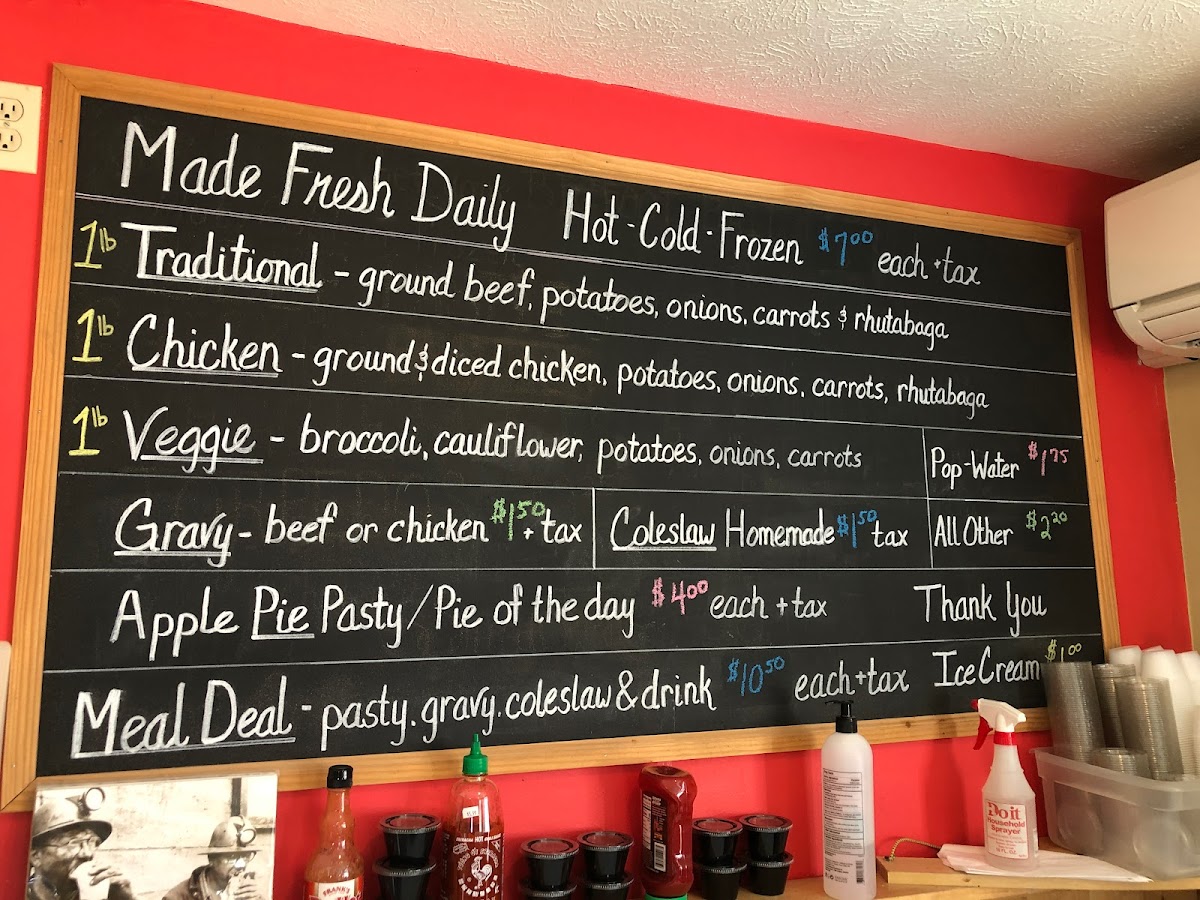 Made Fresh Daily Hot-Cold-Frozen $7.00 each + tax
1lb Traditional - ground beef, potatoes, onions, carrots & rhutabaga
1lb Chicken - ground & diced chicken, potatoes, onions, carrots, rhutabaga
1lb Veggie - broccoli, cauliflower, potatoes, onions, carrots
Pop-Water $1.75
Gravy - beef or chicken $1.50 + tax
Coleslaw Homemade $1.50 tax
All Other $2.20
Apple Pie Pasty/Pie of the day $4.00 each + tax
Thank You
Meal Deal - pasty, gravy, coleslaw & drink $10.50 each + tax
Ice Cream $1.00
FRANK'S
Do it
Household
Sprayer